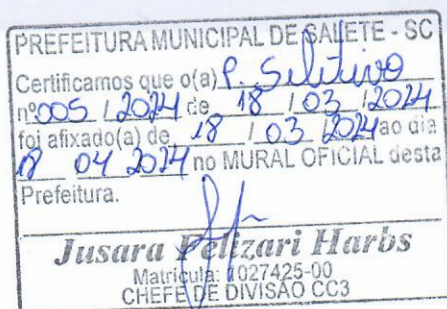 PREFEITURA MUNICIPAL DE SALETE - SC
Certificamos que o(a) P. Seletivo
nº 005 / 2024 de 18 / 03 / 2024
foi afixado(a) de 18 / 03 / 2024 ao dia
18 04 2024 no MURAL OFICIAL desta
Prefeitura.
Jusara Pelizari Harbs
Matrícula: 1027425-00
CHEFE DE DIVISÃO CC3